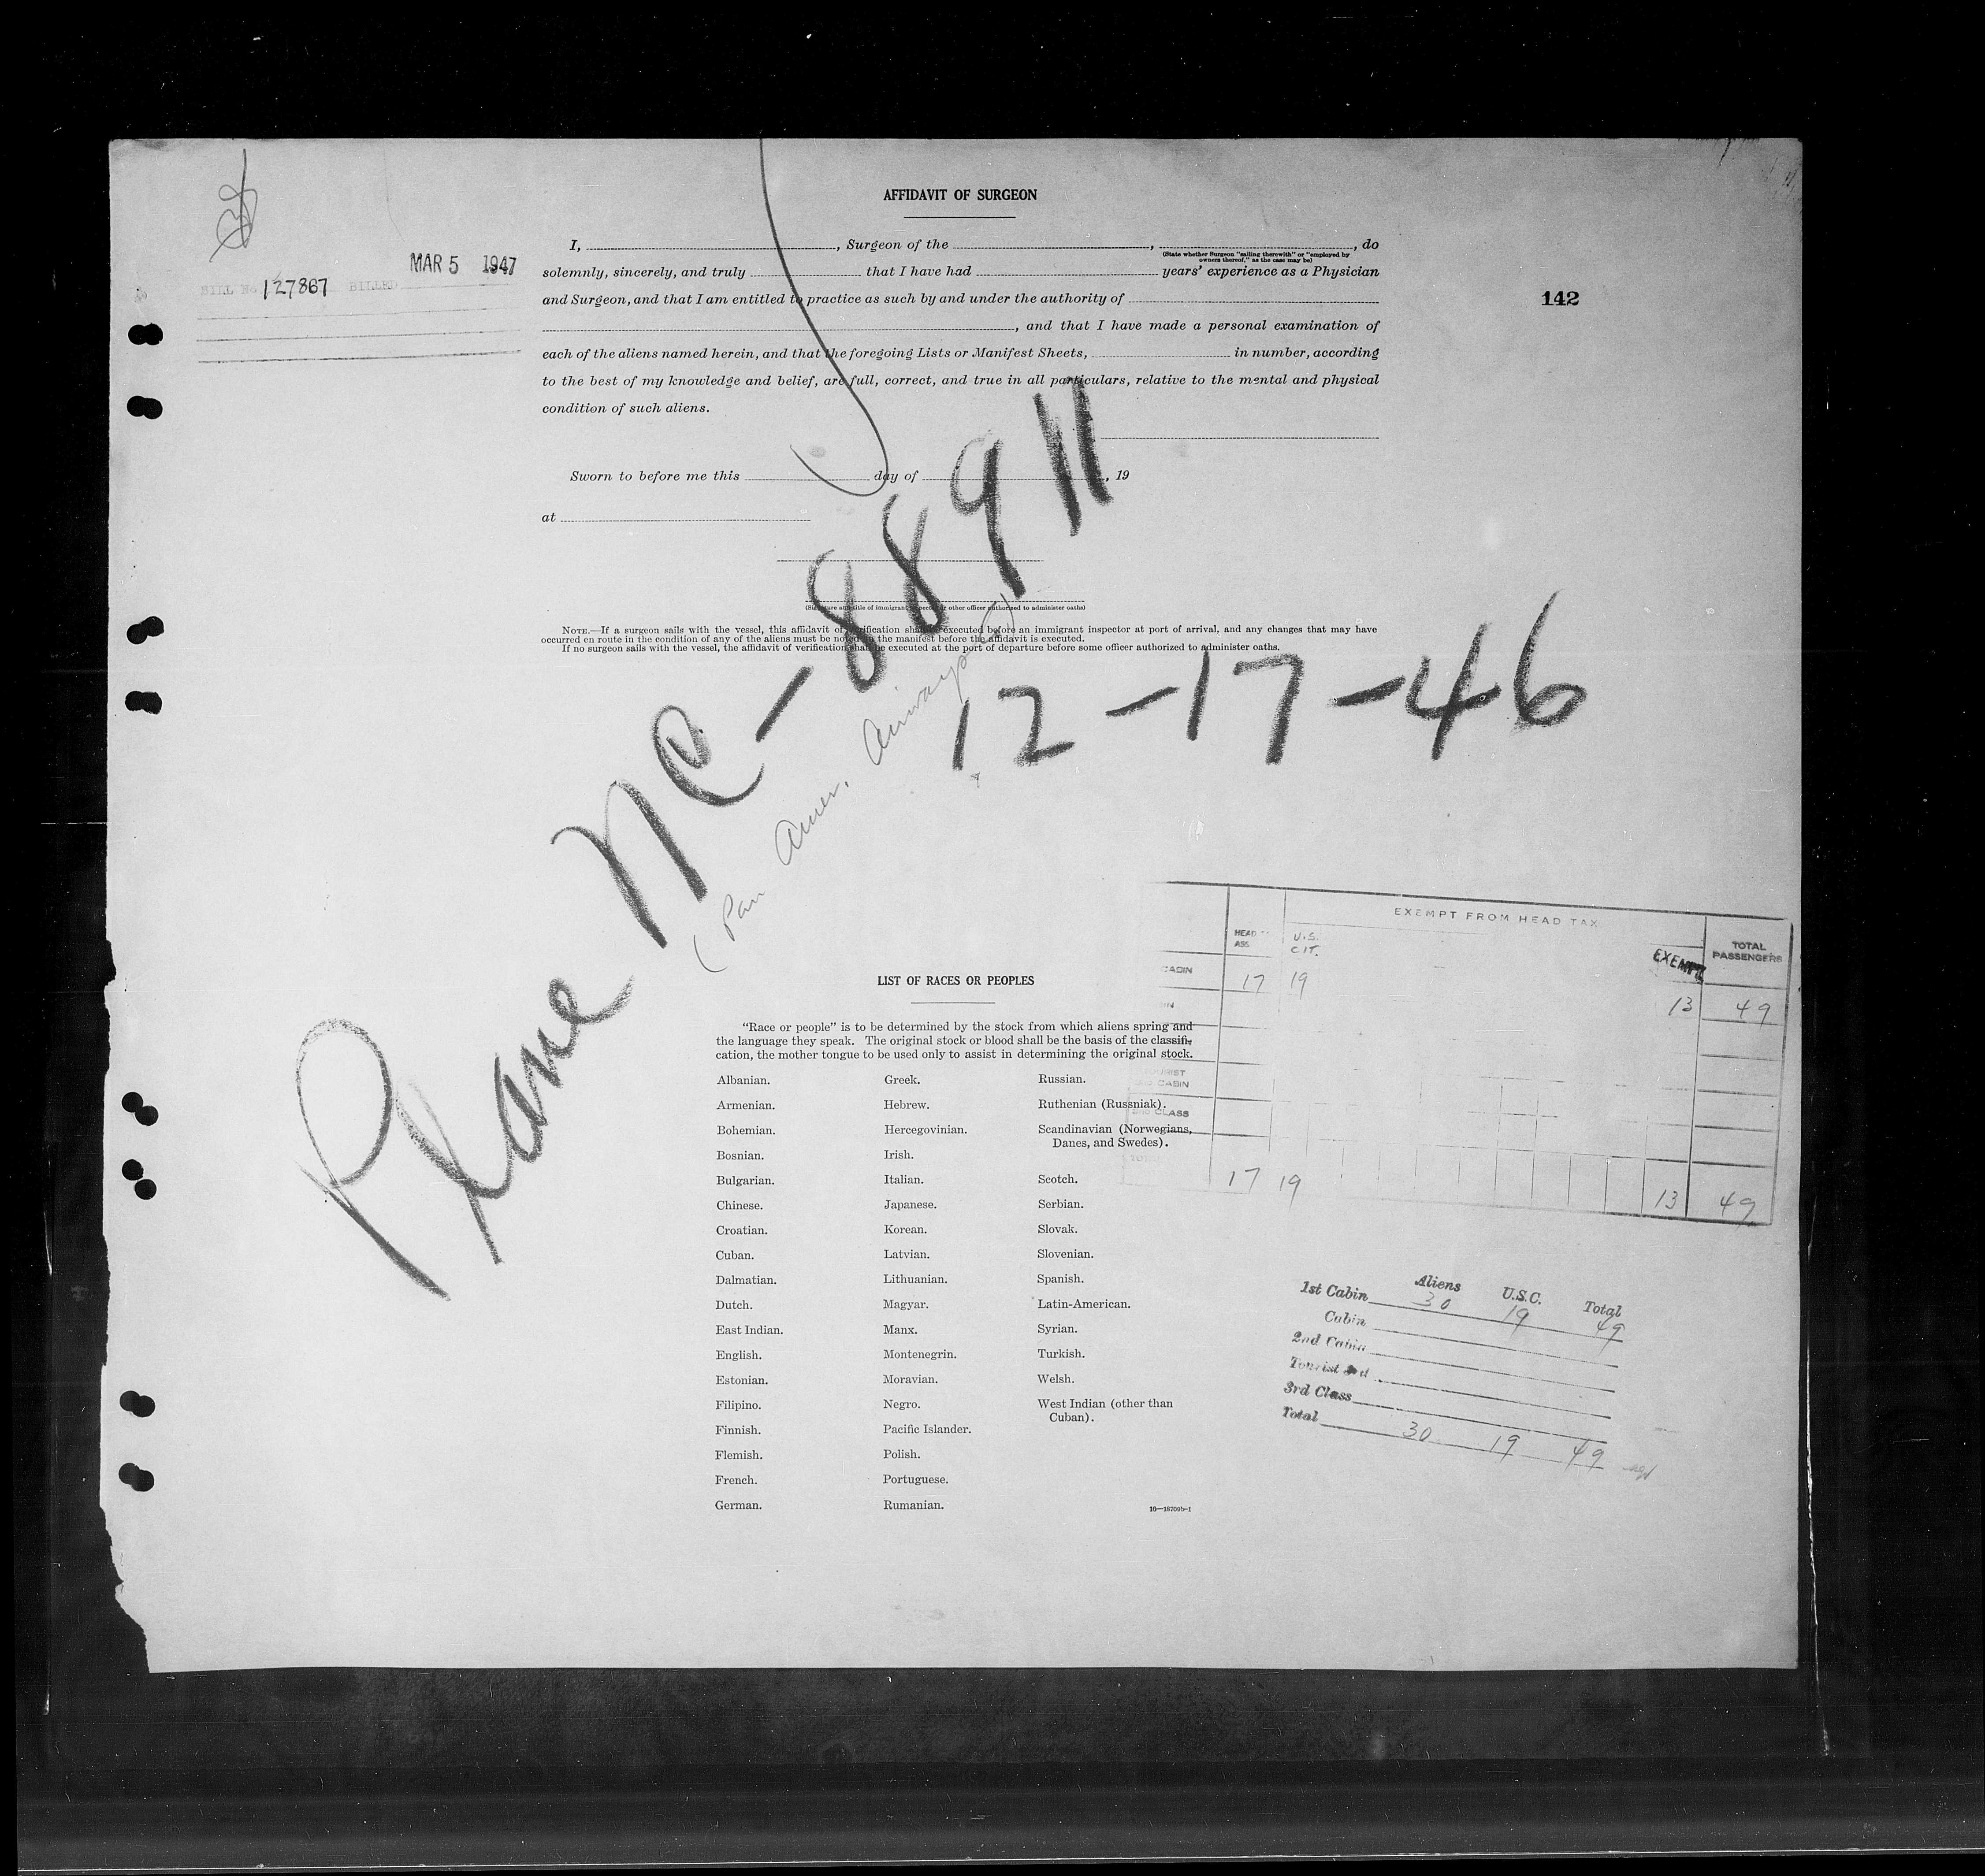 AFFIDAVIT OF SURGEON
I, , Surgeon of the , , do
(State whether Surgeon "sailing therewith" or "employed by
owners thereof," as the case may be)
solemnly, sincerely, and truly that I have had years' experience as a Physician
and Surgeon, and that I am entitled to practice as such by and under the authority of
, and that I have made a personal examination of
each of the aliens named herein, and that the foregoing Lists or Manifest Sheets, in number, according
to the best of my knowledge and belief, are full, correct, and true in all particulars, relative to the mental and physical
condition of such aliens.
Sworn to before me this day of , 19
at
(Signature and title of immigrant inspector or other officer authorized to administer oaths)
NOTE.—If a surgeon sails with the vessel, this affidavit of verification shall be executed before an immigrant inspector at port of arrival, and any changes that may have
occurred en route in the condition of any of the aliens must be noted on the manifest before the affidavit is executed.
If no surgeon sails with the vessel, the affidavit of verification shall be executed at the port of departure before some officer authorized to administer oaths.
MAR 5 1947
BILL No. 127867 BILLED
142
Plane NC-88911
(Pan Amer. Airways)
12-17-46
LIST OF RACES OR PEOPLES
"Race or people" is to be determined by the stock from which aliens spring and
the language they speak. The original stock or blood shall be the basis of the classifi-
cation, the mother tongue to be used only to assist in determining the original stock.
Albanian.
Armenian.
Bohemian.
Bosnian.
Bulgarian.
Chinese.
Croatian.
Cuban.
Dalmatian.
Dutch.
East Indian.
English.
Estonian.
Filipino.
Finnish.
Flemish.
French.
German.
Greek.
Hebrew.
Hercegovinian.
Irish.
Italian.
Japanese.
Korean.
Latvian.
Lithuanian.
Magyar.
Manx.
Montenegrin.
Moravian.
Negro.
Pacific Islander.
Polish.
Portuguese.
Rumanian.
Russian.
Ruthenian (Russniak).
Scandinavian (Norwegians,
Danes, and Swedes).
Scotch.
Serbian.
Slovak.
Slovenian.
Spanish.
Latin-American.
Syrian.
Turkish.
Welsh.
West Indian (other than
Cuban).
16—18709b-1
EXEMPT FROM HEAD TAX
HEAD
ASS
U.S.
CIT.
EXEMPT
TOTAL
PASSENGERS
CABIN 17 19 13 49
TOURIST
CABIN
CLASS
17 19 13 49
Aliens U.S.C. Total
1st Cabin 30 19 49
Cabin
2nd Cabin
Tourist 3rd
3rd Class
Total 30 19 49